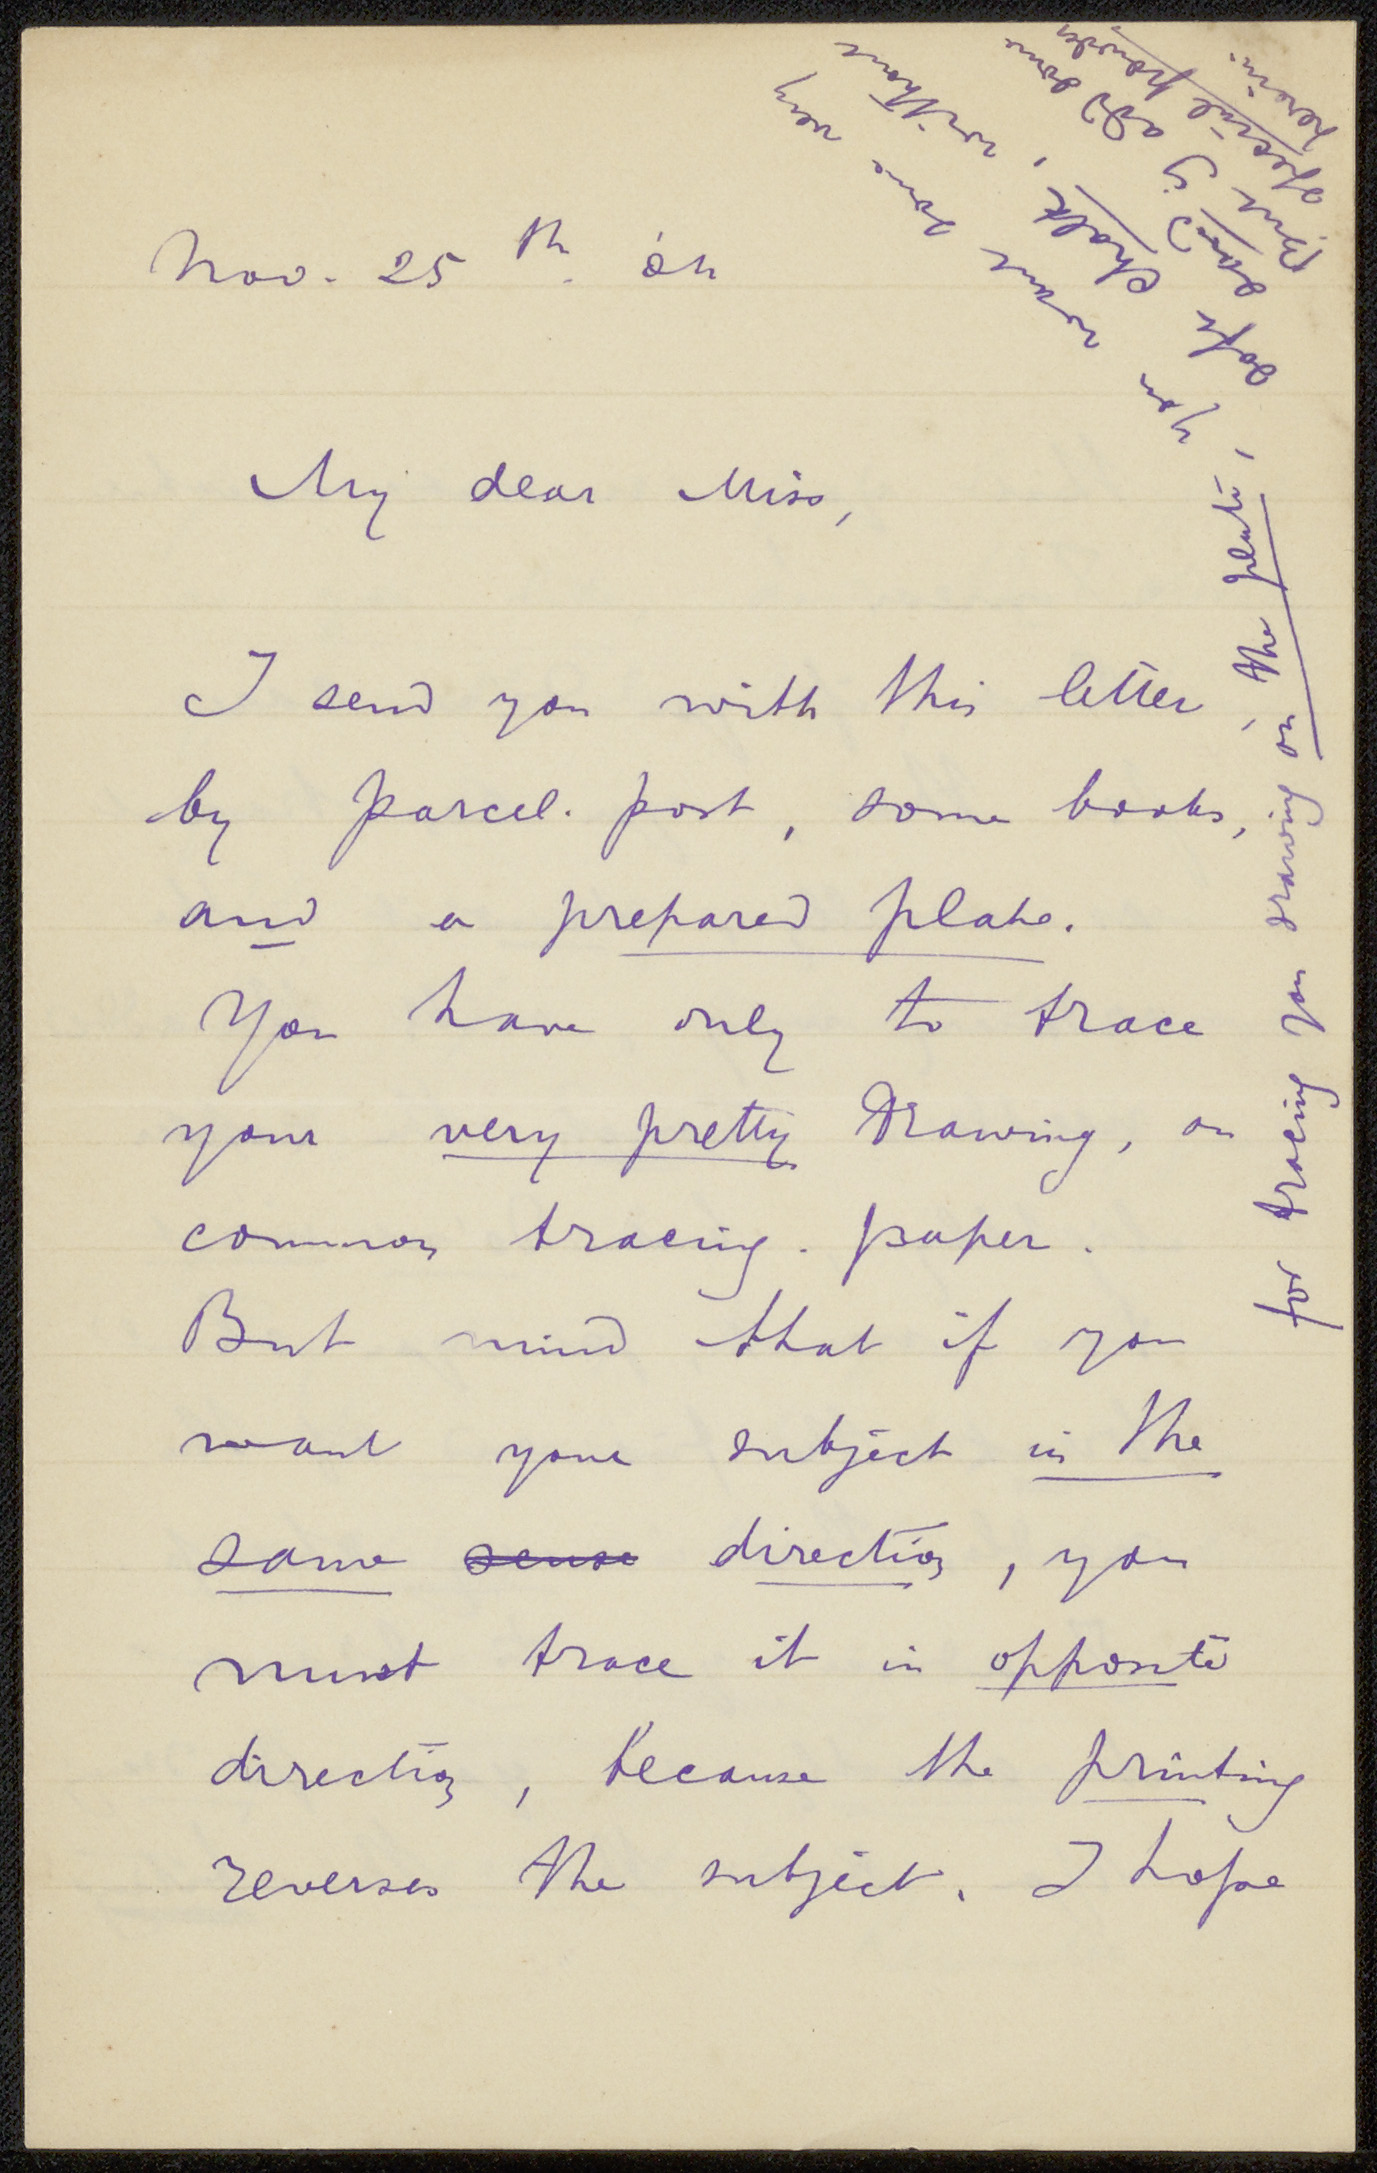 Nov. 25th.
My dear Miss,
I send you with this letter
by parcel. post, some books,
and a prepared plate.
You have only to trace
your very pretty Drawing, on
common tracing. paper.
But mind that if you
want your subject in the
same sense direction, you
must trace it in opposite
direction, because the printing
reverses the subject. I hope
for tracing you drawing on the plate,
you want some very
soft chalk, without
sand in it
But add some
special powder
herein.